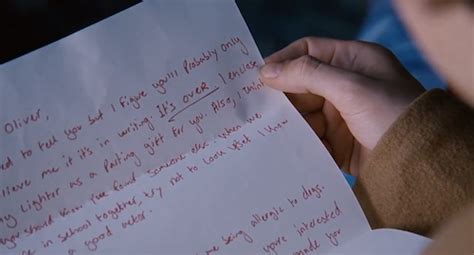 Oliver,
ed to tell you but I Figure you'll Probably only
lieve me if it's in writing. It's OVER. I enclose
Lighter as a Parting gift for you. Also, I think
you should know I've found someone else. When we
in school together, try not to look what I know
a good actor.
me being allergic to dogs.
you're interested
made for